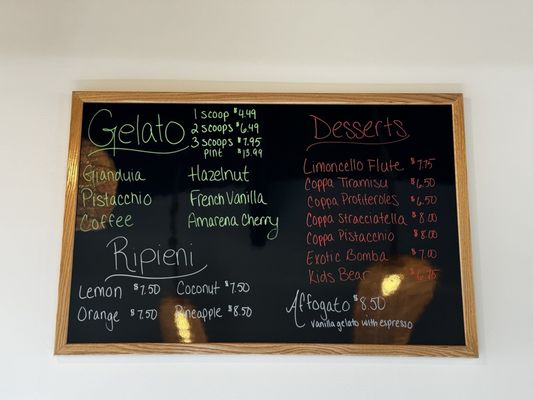 Gelato
1 scoop $4.49
2 scoops $6.49
3 scoops $7.95
pint $13.99
Gianduia Hazelnut
Pistacchio French Vanilla
Coffee Amarena Cherry
Ripieni
Lemon $7.50 Coconut $7.50
Orange $7.50 Pineapple $8.50
Desserts
Limoncello Flute $7.75
Coppa Tiramisu $6.50
Coppa Profiteroles $6.50
Coppa Stracciatella $8.00
Coppa Pistacchio $8.00
Exotic Bomba $7.00
Kids Bear $6.75
Affogato $8.50
vanilla gelato with espresso